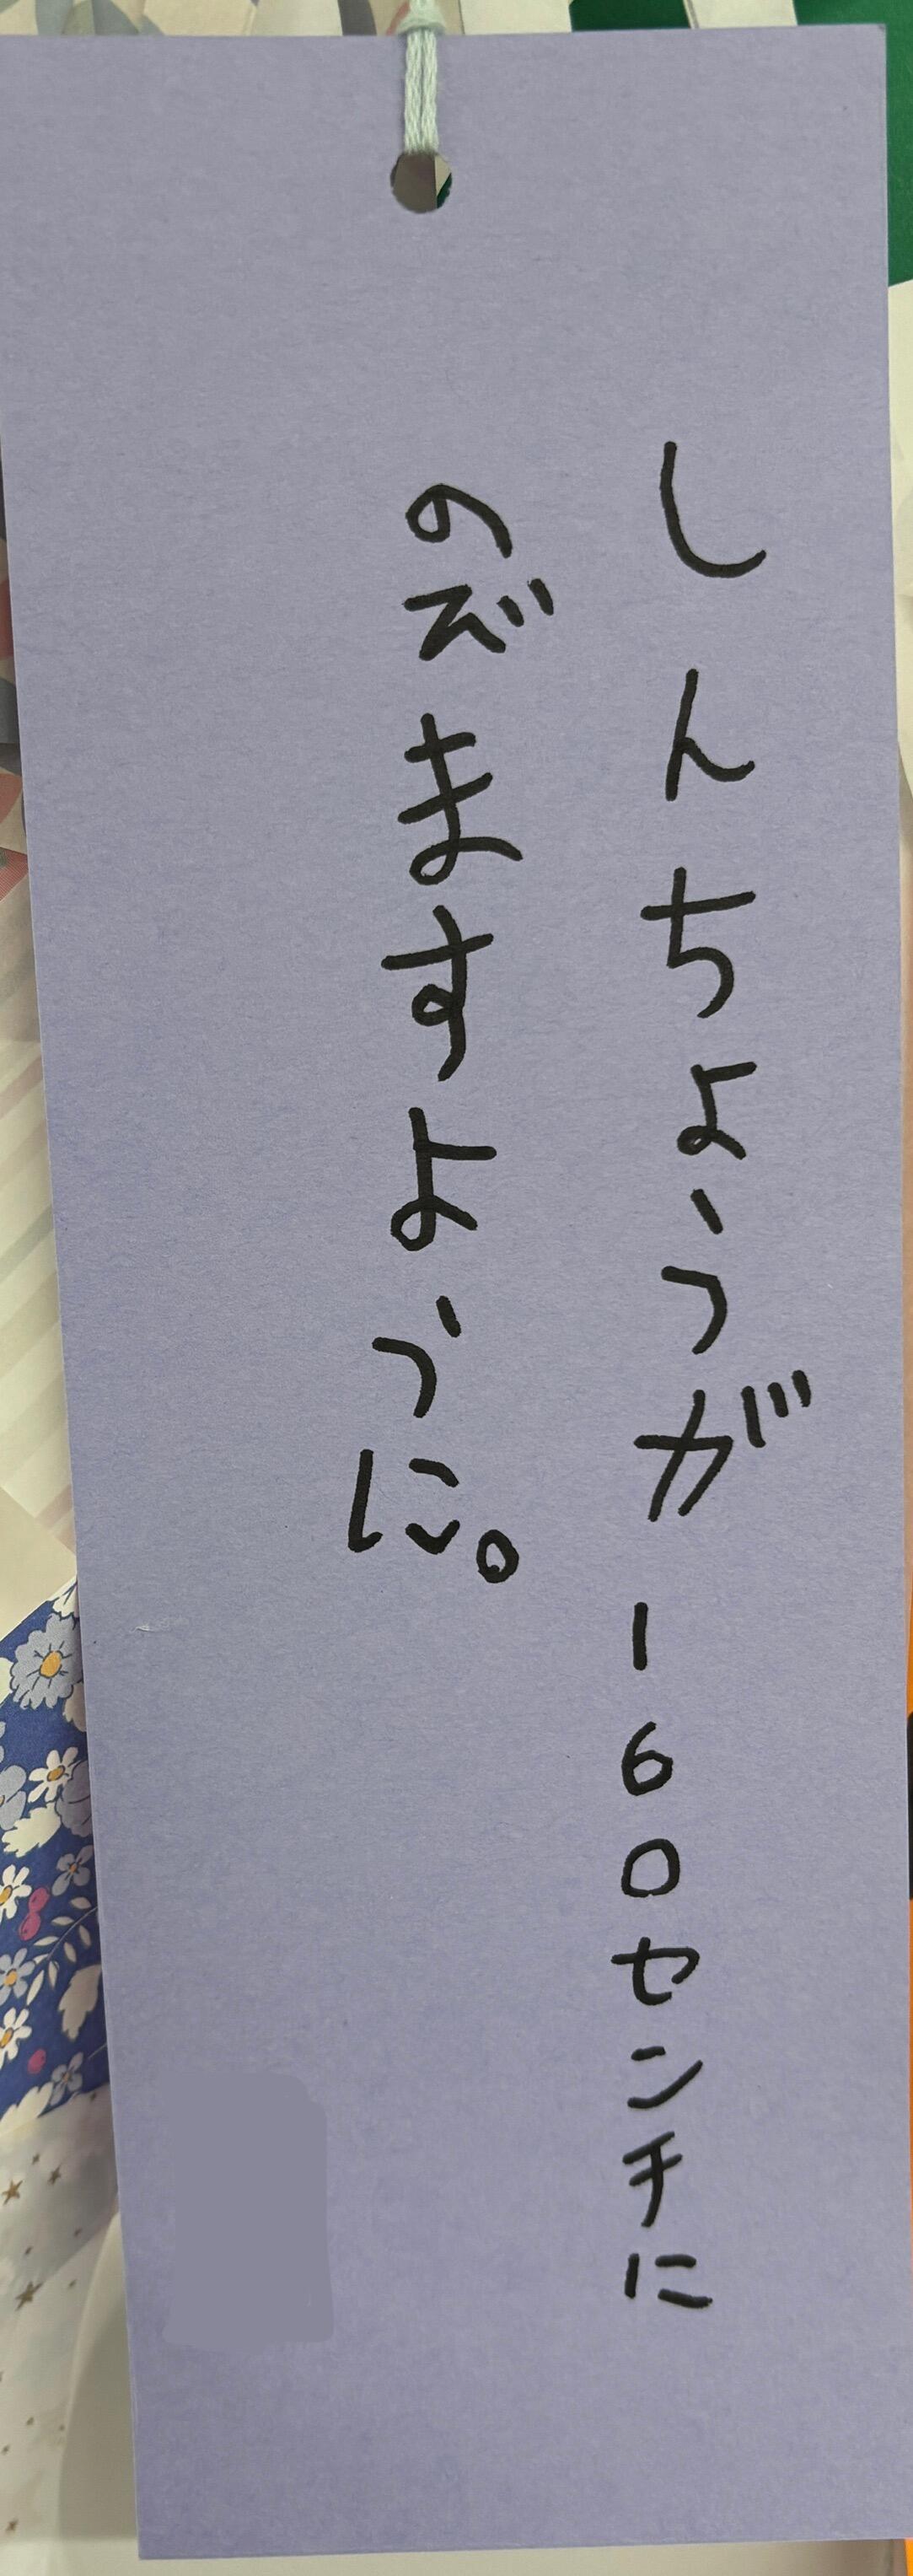 しんちょうが160センチに
のぞますように。